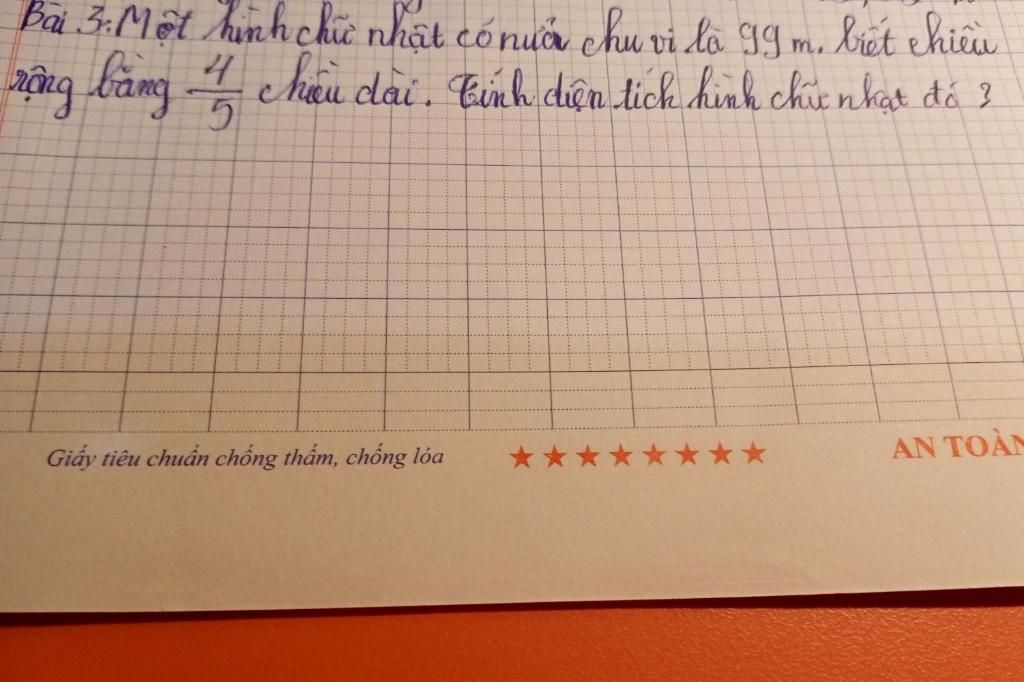 Bài 3: Một hình chữ nhật có nửa chu vi là 99 m. biết chiều
rộng bằng 4/5 chiều dài. Tính diện tích hình chữ nhạt đó ?
Giấy tiêu chuẩn chống thấm, chống lóa ★★★★★★★★ AN TOÀN